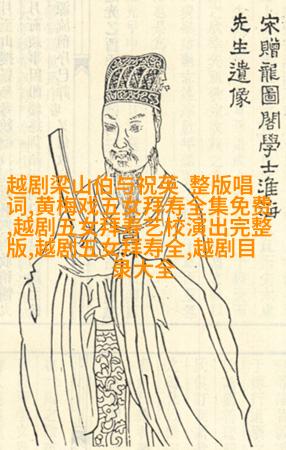 宋贈龍圖閣學士淮海
先生遺像
越剧梁山伯与祝英 整版唱
词,黄梅戏五女拜寿全集免费
,越剧五女拜寿艺校演出完整
版,越剧五女拜寿全,越剧目
录大全